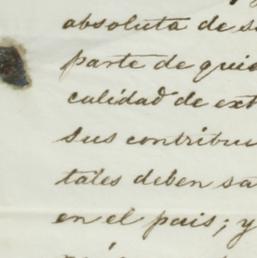 absoluta de s
parte de quie
calidad de ext
sus contribu
tales deben sa
en el pais; y